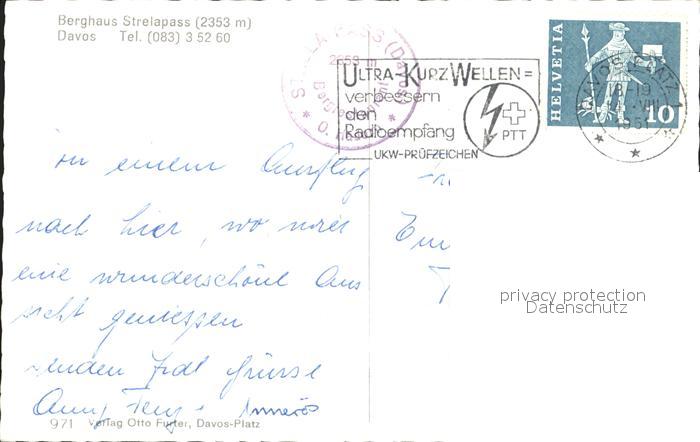 Berghaus Strelapass (2353 m)
Davos Tel. (083) 3 52 60
STRELA PASS (Davos)
2353 m
ULTRA-KURZWELLEN=
verbessern
den
Radioempfang
PTT
UKW-PRÜFZEICHEN
HELVETIA
10
DAVOS PLATZ 1
18-19
VIII
von einem Ausflug
nach hier, wo wir
eine wunderschöne Aus
sicht geniessen
senden Grüsse
privacy protection
Datenschutz
971 Verlag Otto Furter, Davos-Platz